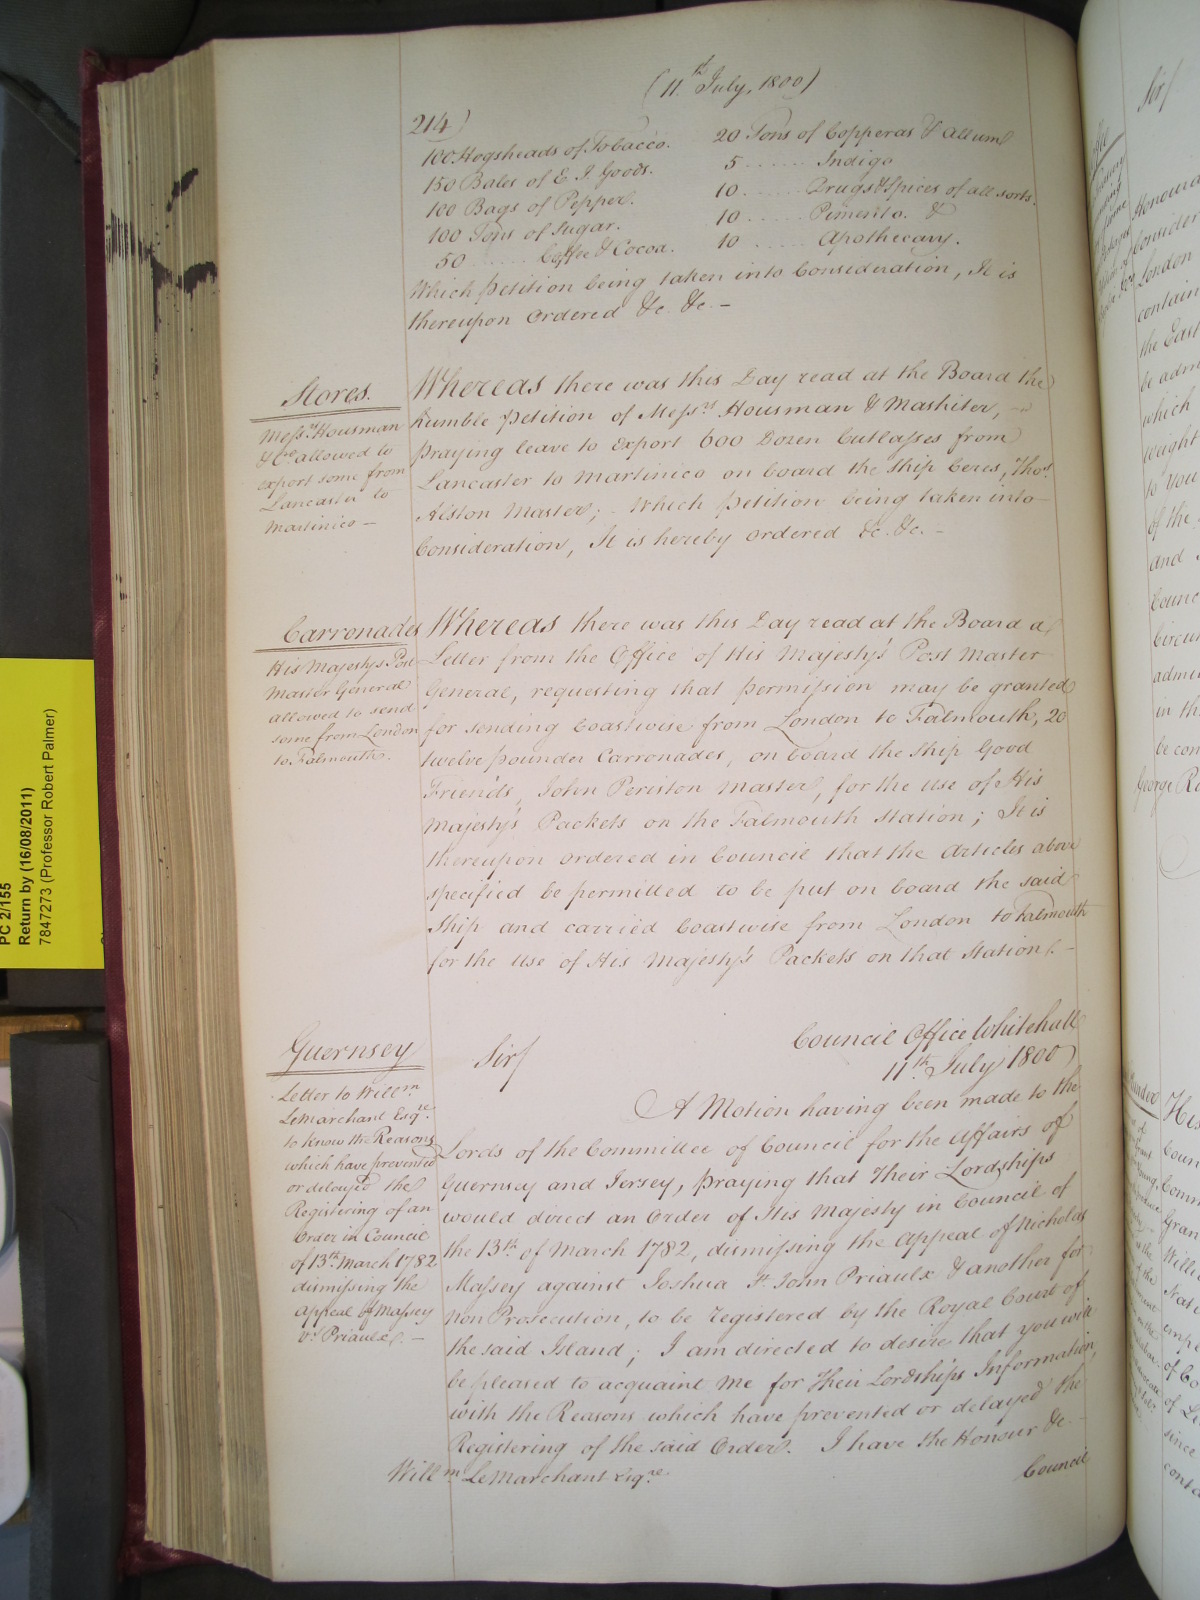 (11th July, 1800)
214)
100 Hogsheads of Tobacco.
150 Bales of E. I. Goods.
100 Bags of Pepper.
100 Tons of Sugar.
50 ...... Coffee & Cocoa.
20 Tons of Copperas & Allum
5 ...... Indigo
10 ...... Drugs & Spices of all sorts.
10 ...... Pimento. &
10 ...... Apothecary.
Which petition being taken into Consideration, It is
thereupon Ordered &c. &c. -
Stores.
Messrs Housman
& Co. allowed to
export some from
Lancaster to
Martinico -
Whereas there was this Day read at the Board the
humble petition of Messrs Housman & Mashiter,
praying leave to export 600 Dozen Cutlasses from
Lancaster to Martinico on board the ship Ceres, Thos.
Alston Master; Which petition being taken into
Consideration, It is hereby ordered &c. &c. -
Carronades
His Majesty's Post
Master General
allowed to send
some from London
to Falmouth.
Whereas there was this Day read at the Board a
Letter from the Office of His Majesty's Post Master
General, requesting that permission may be granted
for sending Coastwise from London to Falmouth, 20
twelve pounder Carronades, on board the ship Good
Friends, John Periston Master, for the use of His
Majesty's Packets on the Falmouth Station; It is
thereupon ordered in Council that the Articles above
specified be permitted to be put on board the said
Ship and carried Coastwise from London to Falmouth
for the use of His Majesty's Packets on that Station. -
Guernsey
Letter to Willm
LeMarchant Esqre.
to know the Reasons
which have prevented
or delayed the
Registering of an
Order in Council
of 13th March 1782
dismissing the
Appeal of Massey
vs. Priaulx. -
Council Office Whitehall
11th July 1800
Sir/
A Motion having been made to the
Lords of the Committee of Council for the Affairs of
Guernsey and Jersey, praying that Their Lordships
would direct an Order of His Majesty in Council of
the 13th of March 1782, dismissing the Appeal of Nicholas
Massey against Joshua St. John Priaulx & another for
non Prosecution, to be registered by the Royal Court of
the said Island; I am directed to desire that you will
be pleased to acquaint me for Their Lordships Information,
with the Reasons which have prevented or delayed the
Registering of the said Order. I have the Honour &c. -
Willm LeMarchant Esqre.
Council
PC 2/155
Return by (16/08/2011)
7847273 (Professor Robert Palmer)
Sir/
Honoura
Consider
London
contain
the East
be adm
which
weight
to You
of the
and
Counc
Circu
admi
in th
be con
George R
His
Coun
Comm
Gran
Willi
State
empe
of Co
of Le
since
conta